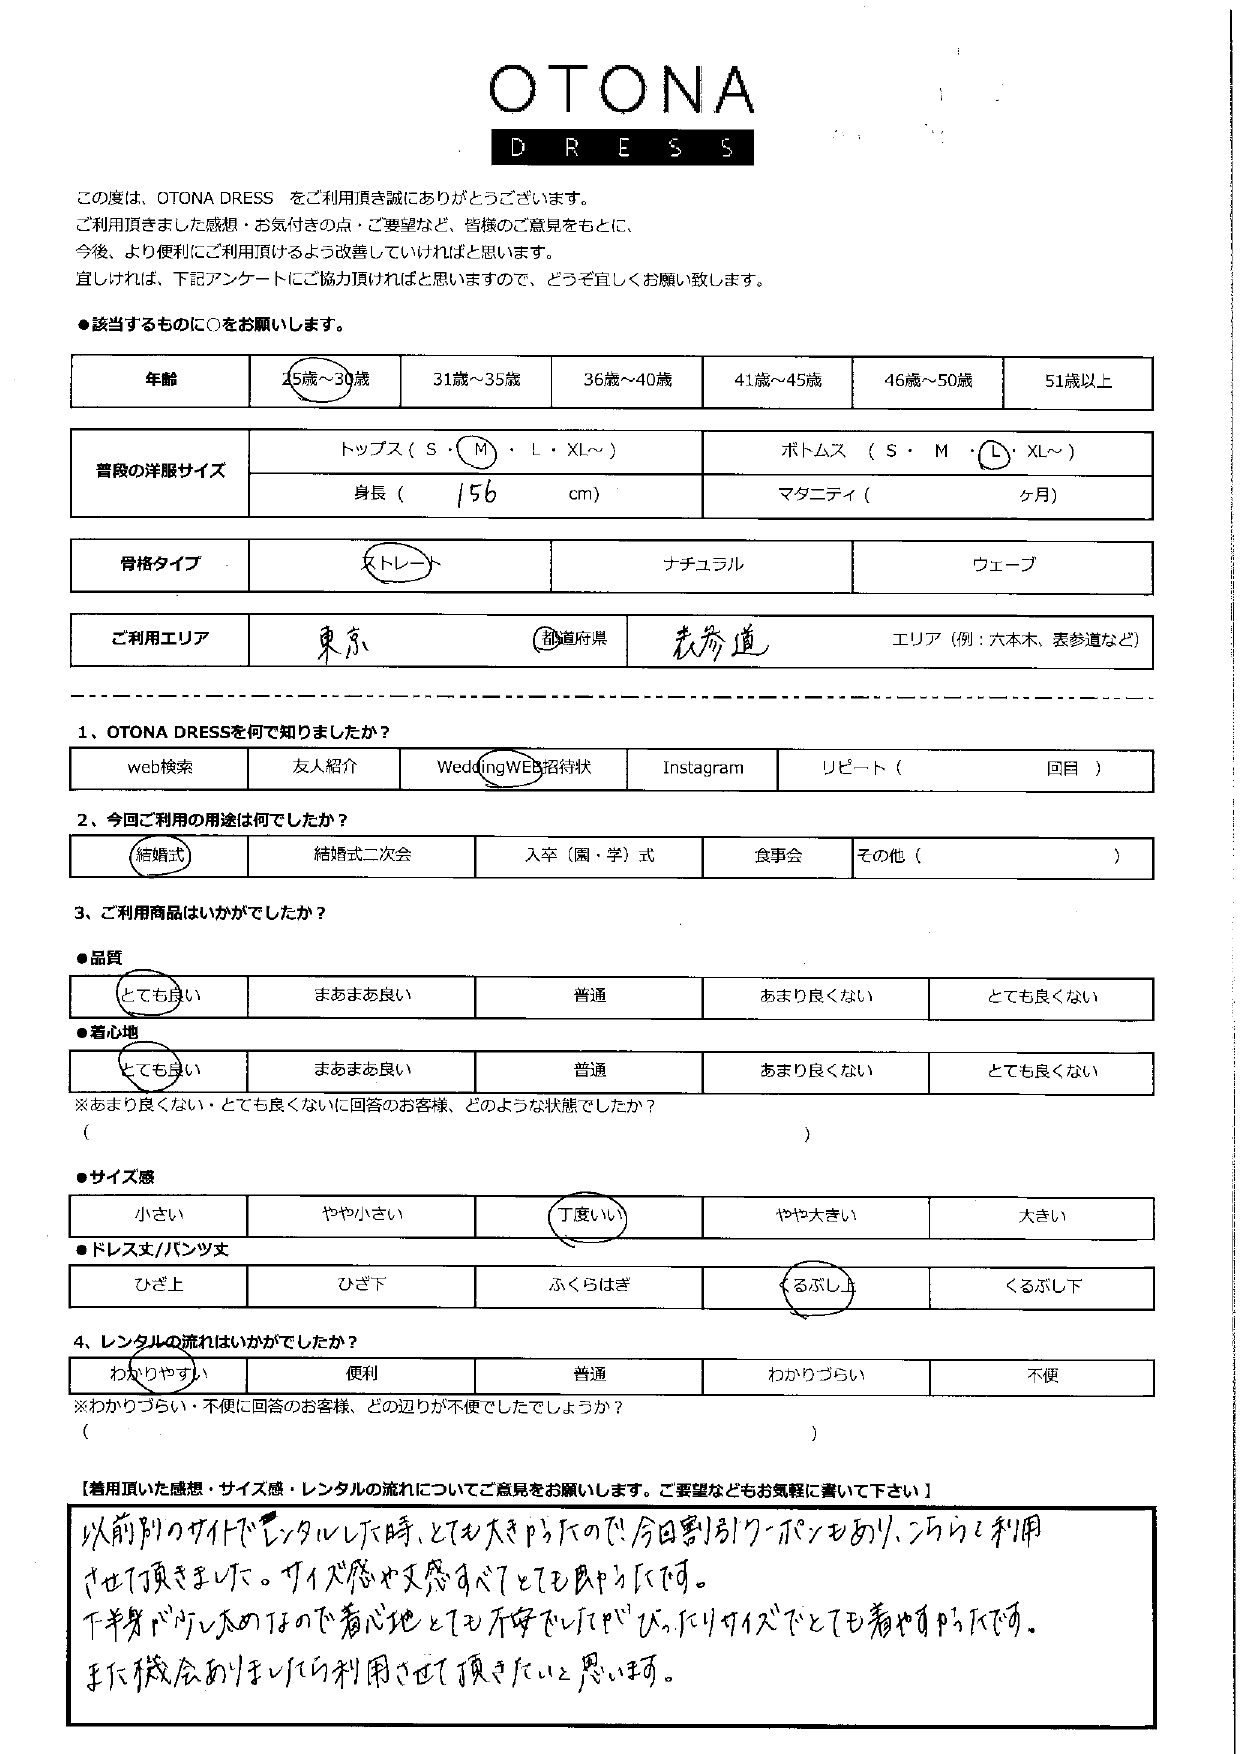 OTONA
DRESS
この度は、OTONA DRESS をご利用頂き誠にありがとうございます。
ご利用頂きました感想・お気付きの点・ご要望など、皆様のご意見をもとに、
今後、より便利にご利用頂けるよう改善していければと思います。
宜しければ、下記アンケートにご協力頂ければと思いますので、どうぞ宜しくお願い致します。
●該当するものに○をお願いします。
年齢 25歳～30歳 31歳～35歳 36歳～40歳 41歳～45歳 46歳～50歳 51歳以上
普段の洋服サイズ トップス ( S ・ M ・ L ・ XL～ ) ボトムス ( S ・ M ・ L ・ XL～ )
身長 ( 156 cm) マタニティ ( ヶ月)
骨格タイプ ストレート ナチュラル ウェーブ
ご利用エリア 東京 都道府県 表参道 エリア（例：六本木、表参道など）
1、OTONA DRESSを何で知りましたか？
web検索 友人紹介 WeddingWEB招待状 Instagram リピート ( 回目 )
2、今回ご利用の用途は何でしたか？
結婚式 結婚式二次会 入卒（園・学）式 食事会 その他 ( )
3、ご利用商品はいかがでしたか？
●品質
とても良い まあまあ良い 普通 あまり良くない とても良くない
●着心地
とても良い まあまあ良い 普通 あまり良くない とても良くない
※あまり良くない・とても良くないに回答のお客様、どのような状態でしたか？
( )
●サイズ感
小さい やや小さい 丁度いい やや大きい 大きい
●ドレス丈/パンツ丈
ひざ上 ひざ下 ふくらはぎ くるぶし上 くるぶし下
4、レンタルの流れはいかがでしたか？
わかりやすい 便利 普通 わかりづらい 不便
※わかりづらい・不便に回答のお客様、どの辺りが不便でしたでしょうか？
( )
【着用頂いた感想・サイズ感・レンタルの流れについてご意見をお願いします。ご要望などもお気軽に書いて下さい】
以前別のサイトでレンタルした時、とても大きかったので、今回割引クーポンもあり、こちらを利用
させて頂きました。サイズ感や丈感すべてとても良かったです。
下半身が少し太めなので着心地とても不安でしたがぴったりサイズでとても着やすかったです。
また機会ありましたら利用させて頂きたいと思います。